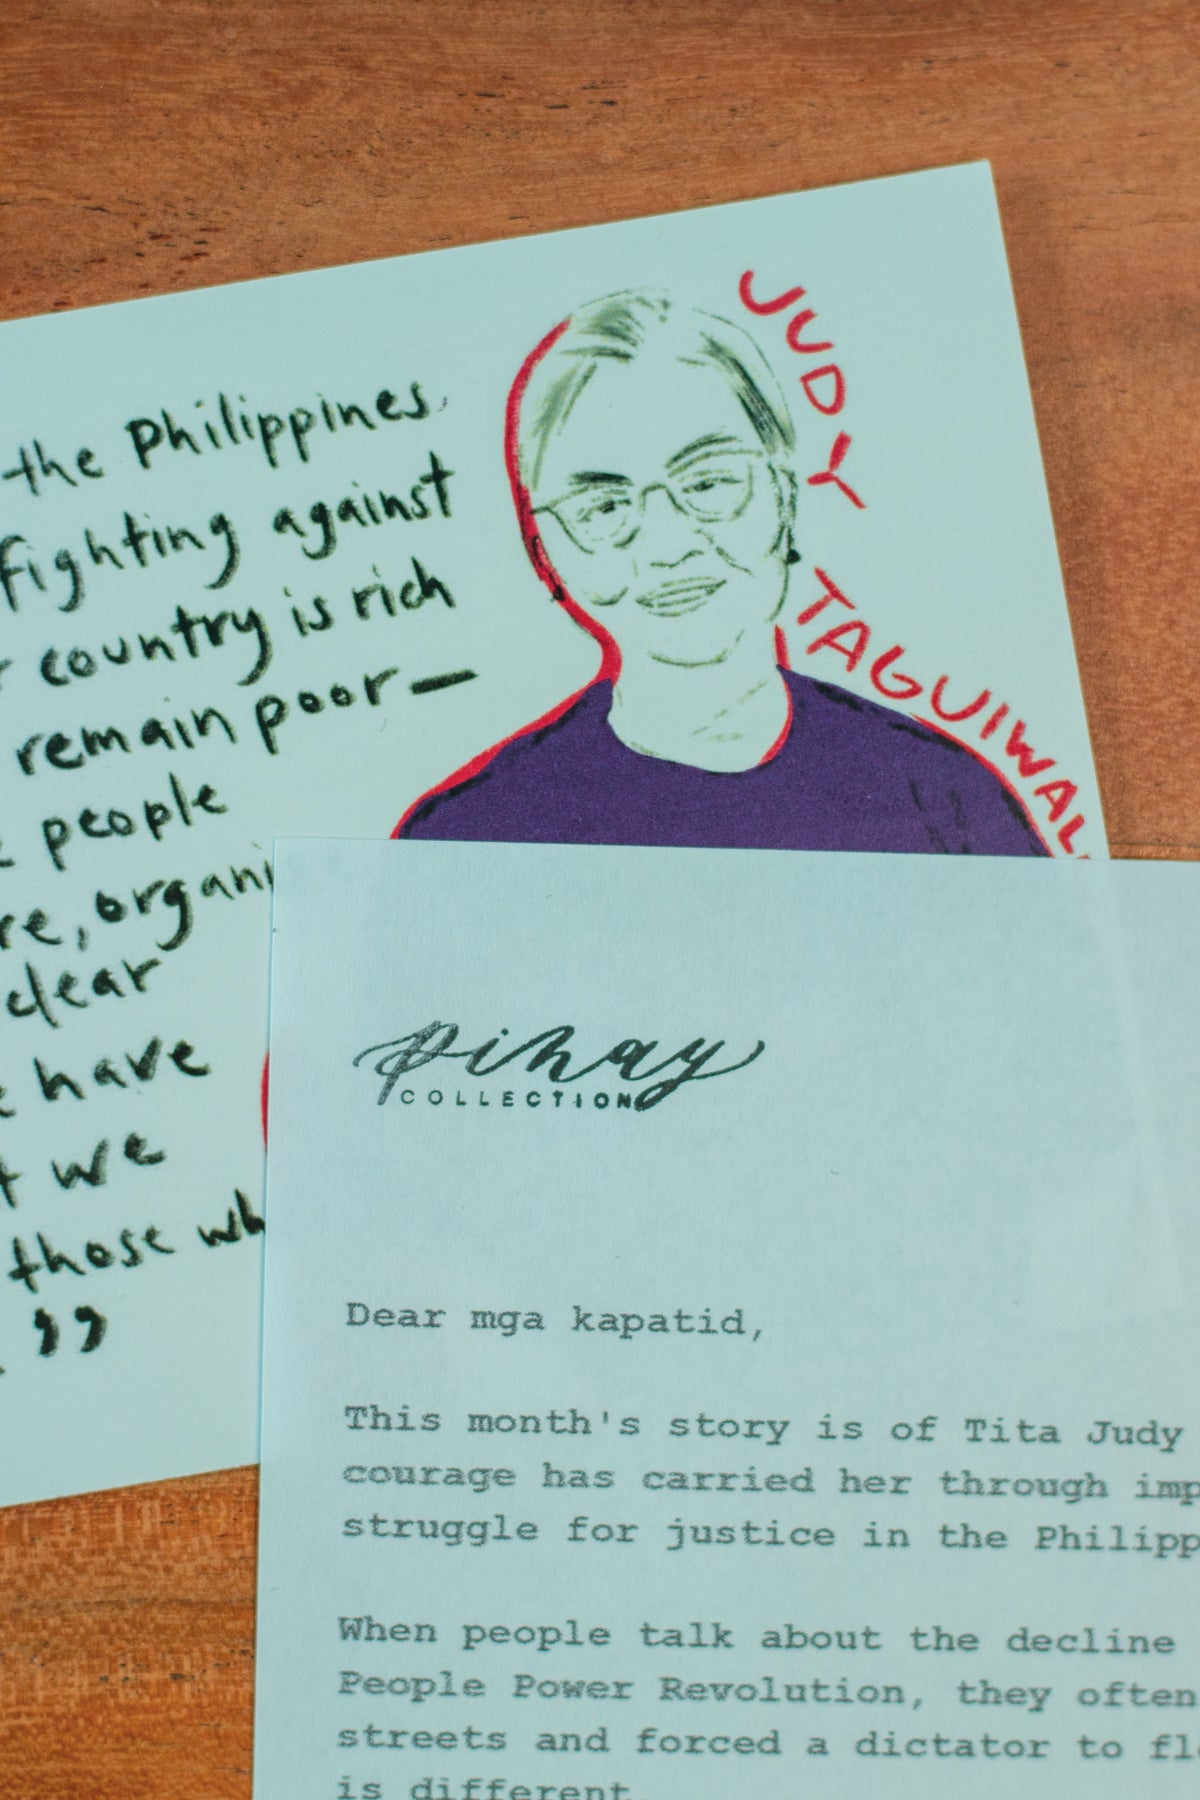 the Philippines,
fighting against
country is rich
remain poor—
people
clear
have
we
those
”
JUDY
TAGUIWAL
pinay
COLLECTION
Dear mga kapatid,
This month's story is of Tita Judy
courage has carried her through
struggle for justice in the
When people talk about the decline
People Power Revolution, they often
streets and forced a dictator to
is different